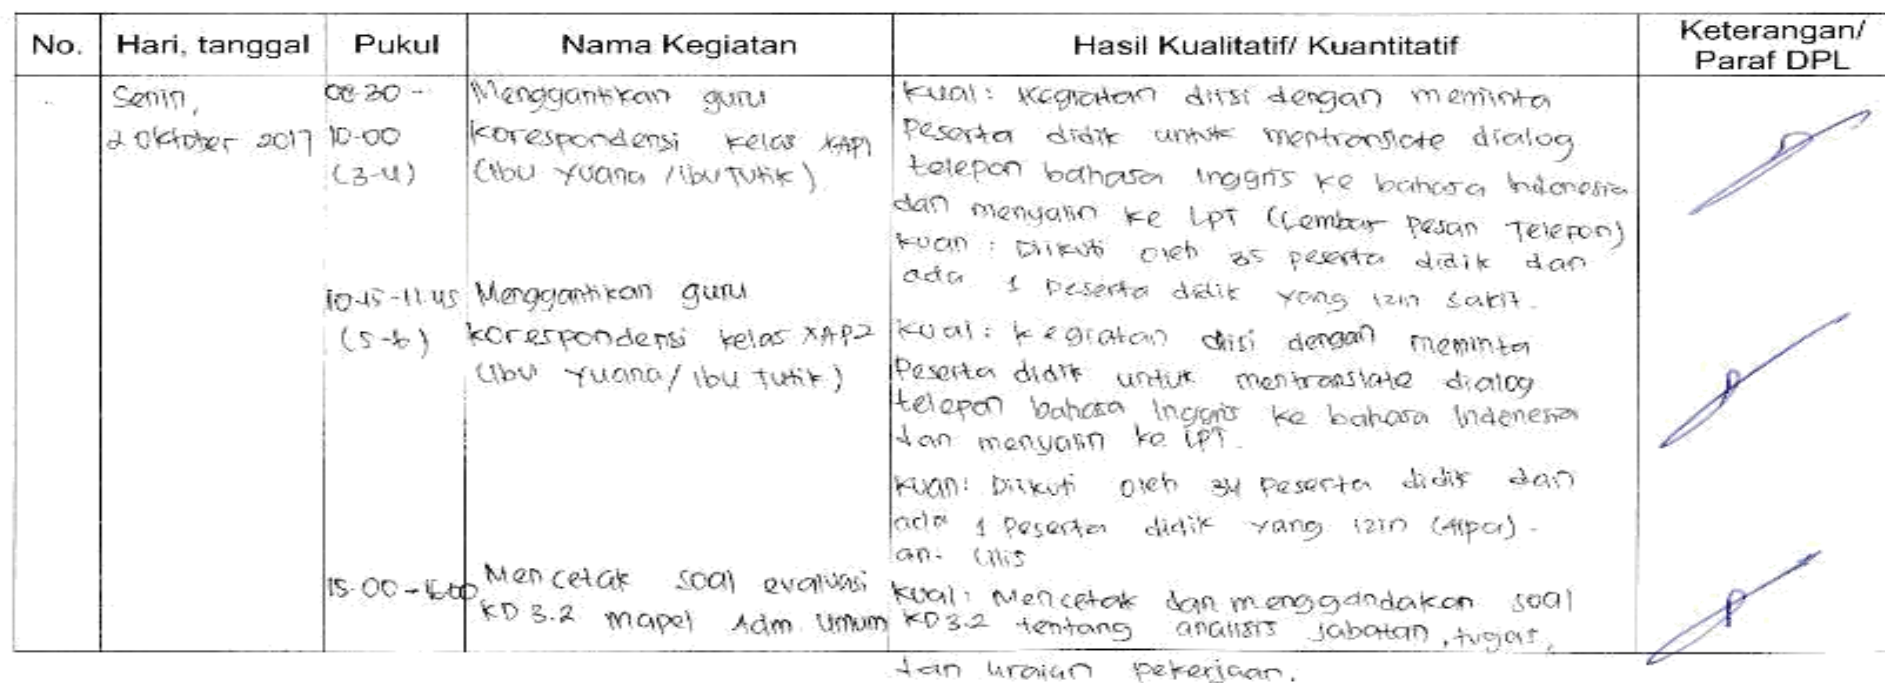 No. Hari, tanggal Pukul Nama Kegiatan Hasil Kualitatif/ Kuantitatif Keterangan/ Paraf DPL
Senin,
2 Oktober 2017
08.30 -
10.00
(3-4)
Menggantikan guru
korespondensi kelas XAP1
(Ibu Yuana / ibu Tutik)
Kual: Kegiatan diisi dengan meminta
Peserta didik untuk mentranslate dialog
telepon bahasa Inggris ke bahasa Indonesia
dan menyalin ke LPT (Lembar Pesan Telepon)
Kuan : Diikuti oleh 35 peserta didik dan
ada 1 peserta didik yang izin sakit.
10.15-11.45
(5-6)
Menggantikan guru
korespondensi kelas XAP2
(Ibu Yuana / ibu Tutik)
Kual: kegiatan diisi dengan meminta
Peserta didik untuk mentranslate dialog
telepon bahasa Inggris ke bahasa Indonesia
dan menyalin ke LPT.
Kuan: Diikuti oleh 34 Peserta didik dan
ada 1 Peserta didik yang izin (Alpa) -
an.
15.00 - 16.00
Mencetak soal evaluasi
KD 3.2 mapel Adm Umum
Kual: Mencetak dan menggandakan soal
KD 3.2 tentang analisis jabatan, tugas,
dan uraian pekerjaan.